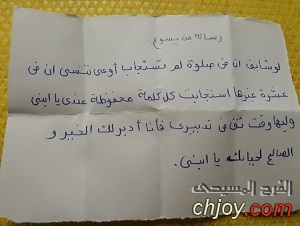 رسالة من يسوع
لو شايف ان فى صلوة لم تستجاب أوعى تنسى ان فى
عشرة غيرها استجابت كل كلمة محفوظة عندى يا ابنى
وليها وقت ثق فى تدبيرى فأنا أدبرلك الخير و
الصالح لحياتك يا ابنى.
الفرح المسيحى
chjoy.com